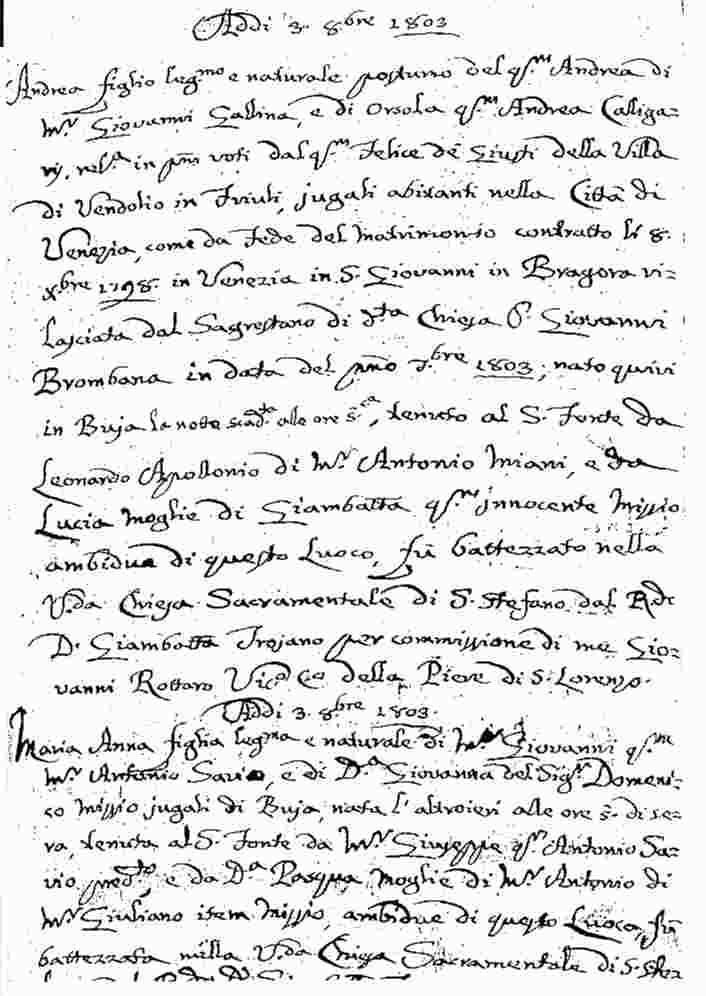 Addi 3. 8bre 1803
Andrea figlio legmo e naturale postumo del qm Andrea di
Mr Giovanni Gallina, e di Orsola qm Andrea Calliga=
rij, in pmi voti dal qm Felice de Giusti della Villa
di Vendolio in Friuli, jugali abitanti nella Città di
Venezia, come da fede del Matrimonio contratto li 8.
xbre 1798. in Venezia in S. Giovanni in Bragora ri=
lasciata dal Sagrestano di dta Chiesa P. Giovanni
Brombana in data del pmo 7bre 1803; nato quivi
in Buja la notte scadta alle ore , tenuto al S. Fonte da
Leonardo Apollonio di Mr Antonio Miani, e da
Lucia moglie di Giambatta qm Innocente Missio
ambidue di questo Luoco, fù battezzato nella
Vda Chiesa Sacramentale di S. Stefano dal Rdo
D. Giambatta Trojano per commissione di me Gio=
vanni Rottaro Vico Co della Pieve di S. Lorenzo.
Addi 3. 8bre 1803.
Maria Anna figlia legma e naturale di Mr Giovanni qm
Mr Antonio Savio, e di Da Giovanna del Sigr Domeni=
co Missio jugali di Buja, nata l'altroieri alle ore 5. di se=
ra, tenuta al S. Fonte da Mr Giuseppe qm Antonio Sa=
vio predto, e da Da Pasqua moglie di Mr Antonio di
Mr Giuliano item Missio, ambidue di questo Luoco, fù
battezzata nella Vda Chiesa Sacramentale di S. Ste=